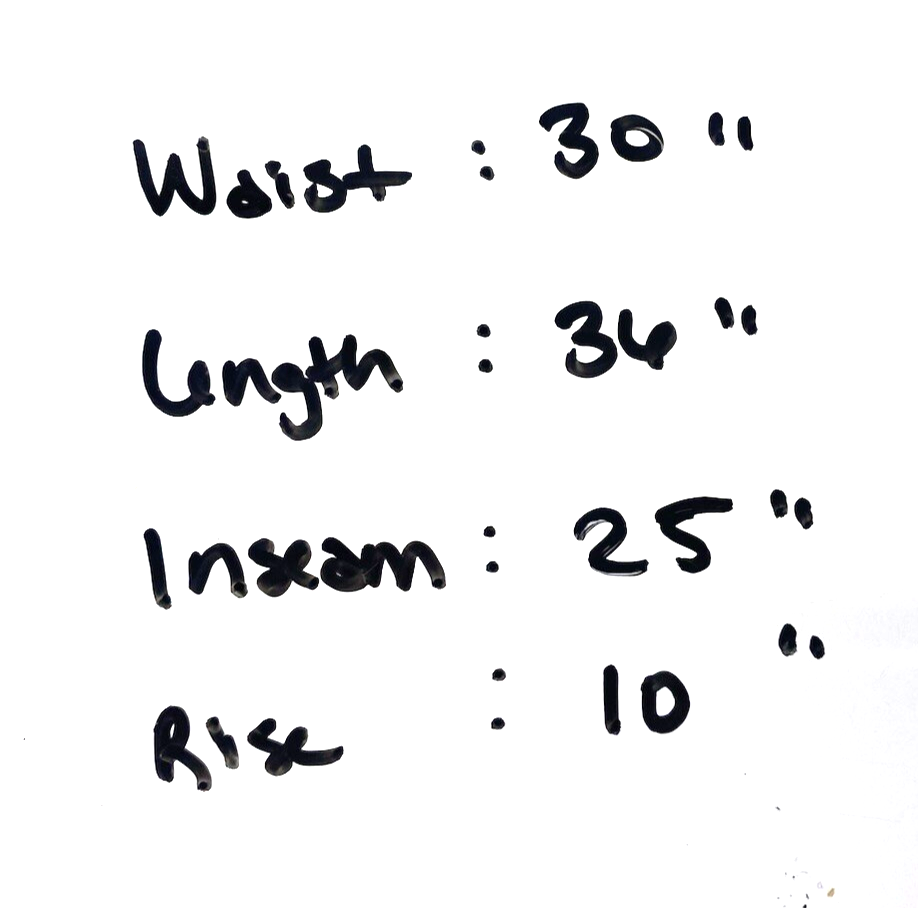 Waist : 30 "
Length : 36 "
Inseam : 25 "
Rise : 10 "